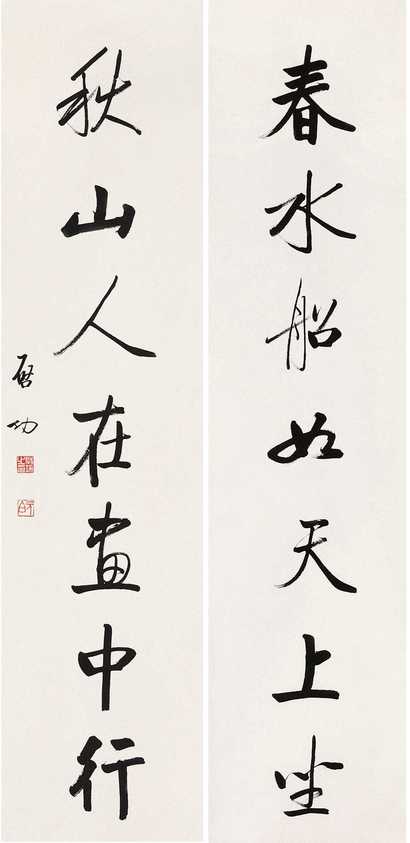 春水船如天上坐
秋山人在畫中行
啓功